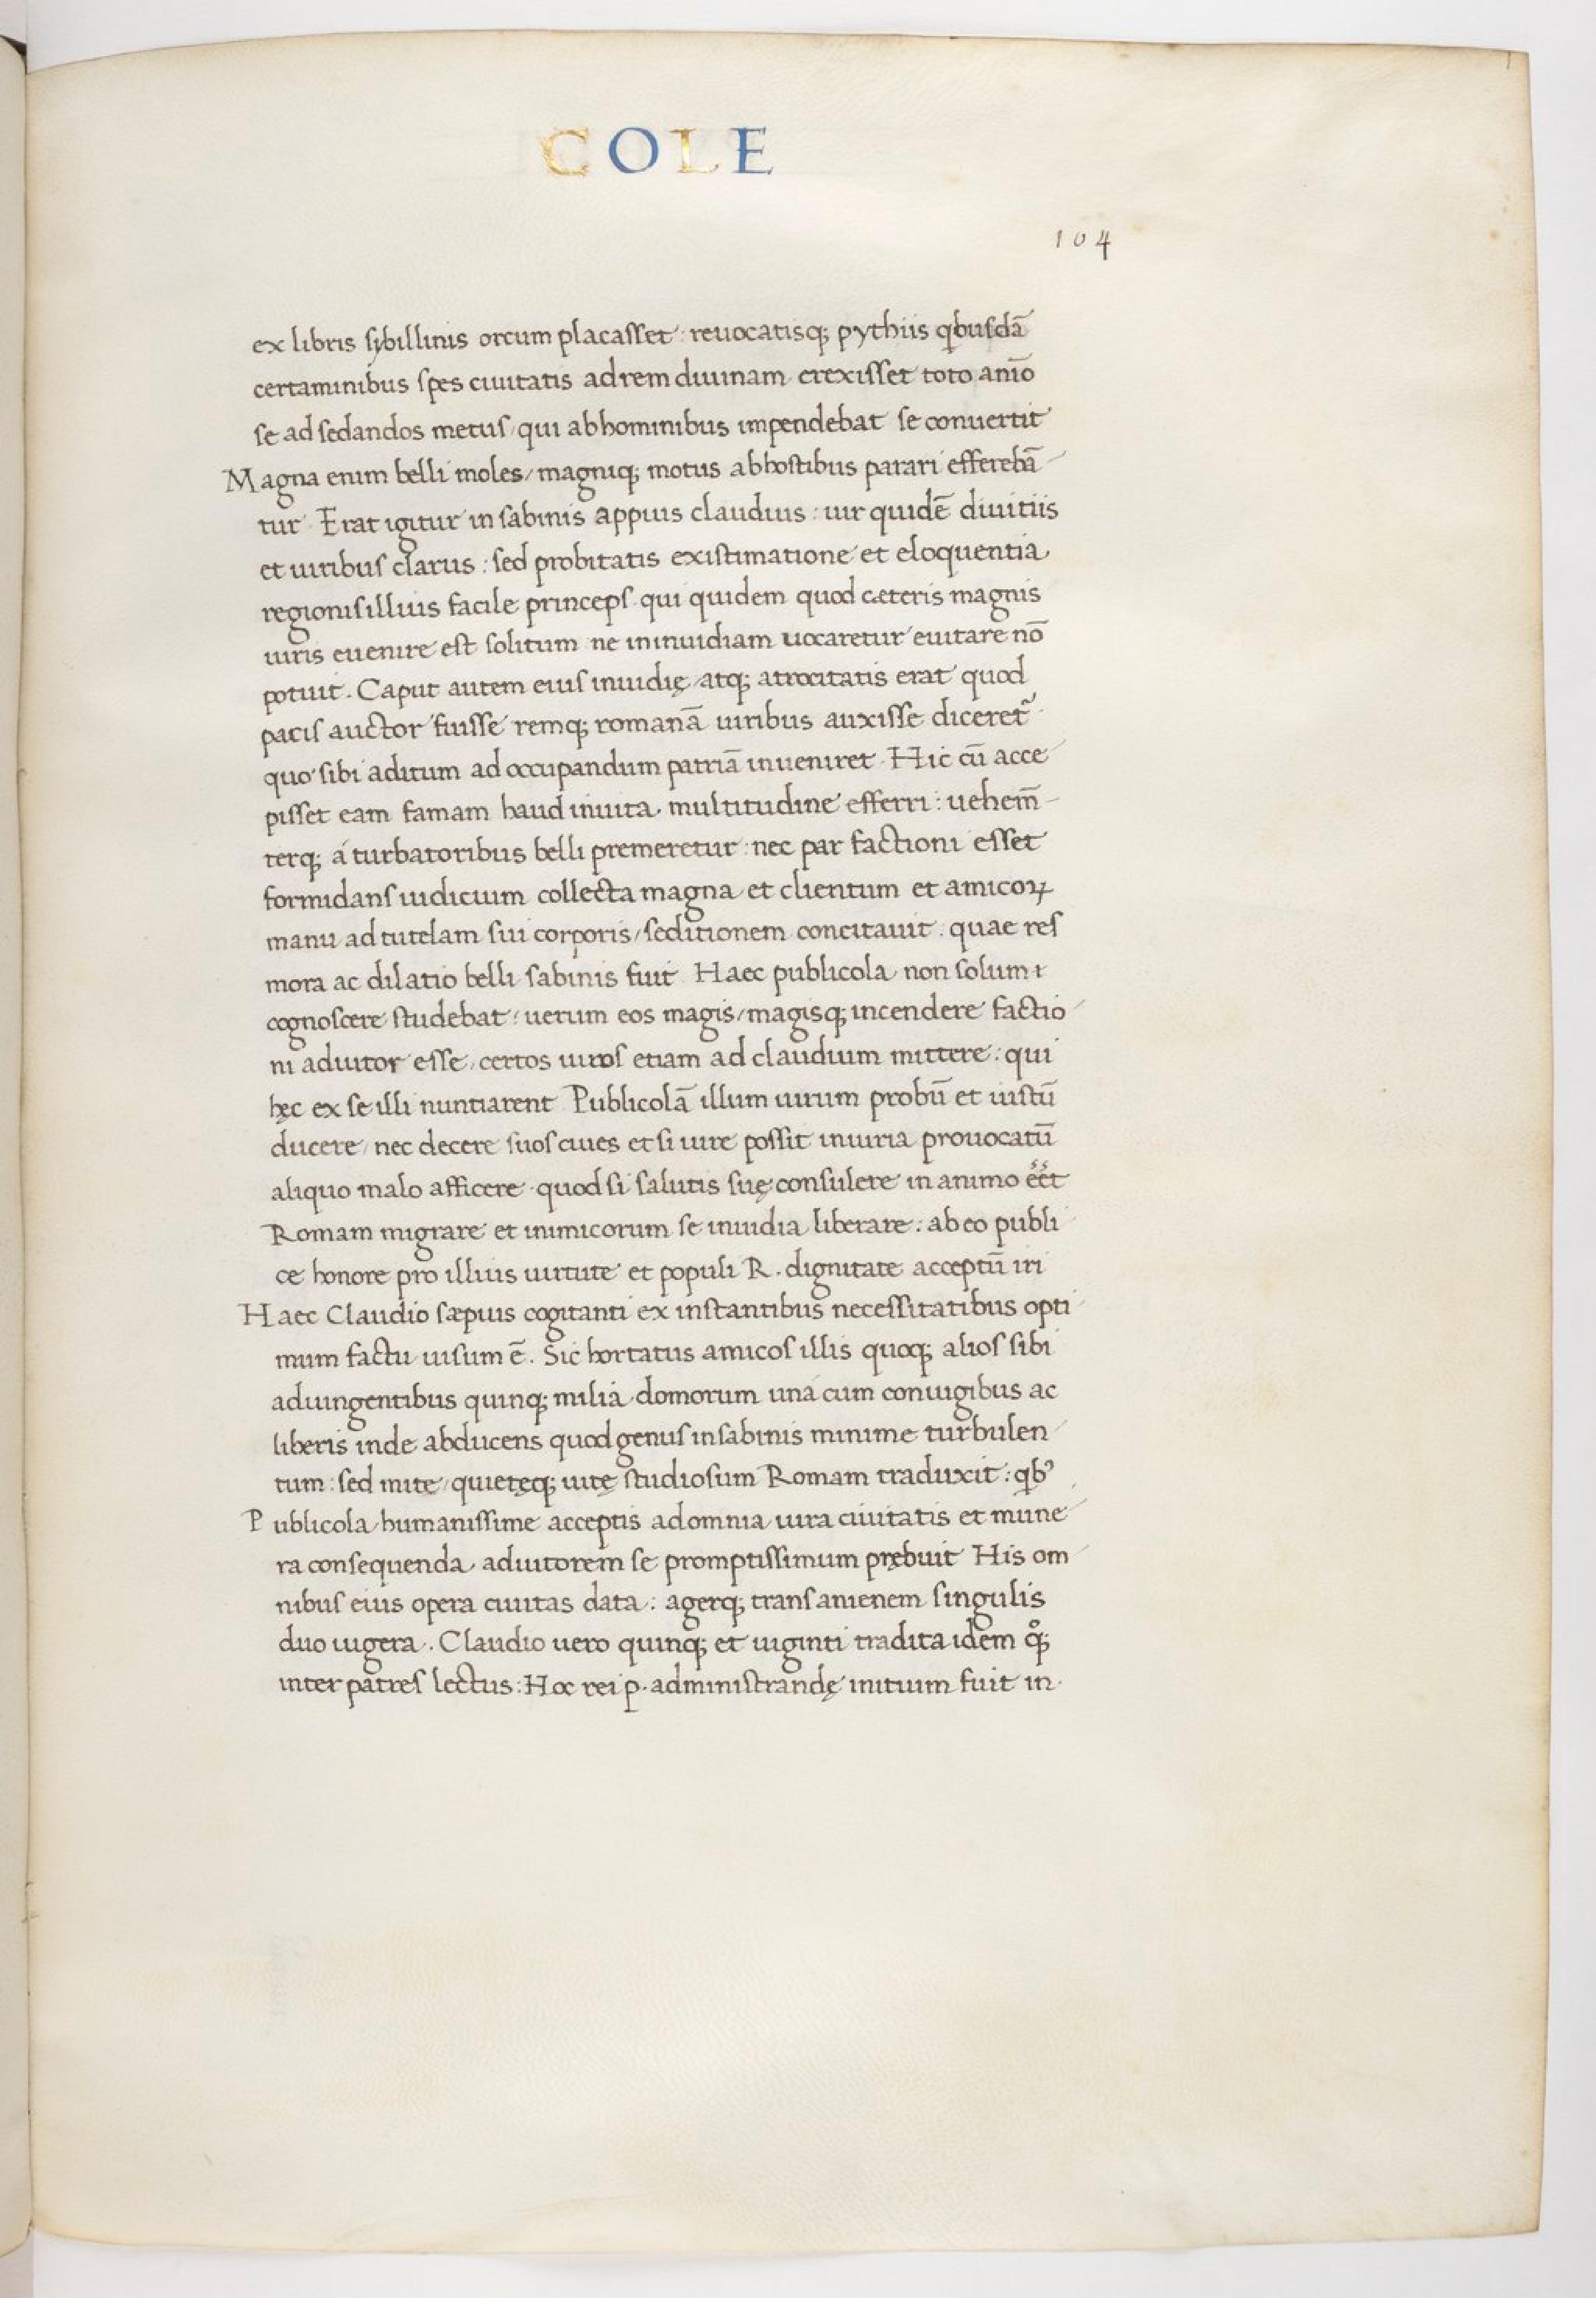 COLE
104
ex libris sybillinis orcum placasset: reuocatisq; pythiis qbusdā
certaminibus spes ciuitatis ad rem diuinam erexisset toto anīo
se ad sedandos metus/ qui ab hominibus impendebat se conuertit
Magna enim belli moles/ magniq; motus ab hostibus parari efferebā-
tur. Erat igitur in sabinis appius claudius: uir quidē diuitiis
et uiribus clarus: sed probitatis existimatione et eloquentia
regionis illius facile princeps. qui quidem quod cæteris magnis
uiris euenire est solitum ne in inuidiam uocaretur euitare nō
potuit. Caput autem eius inuidię/ atq; atrocitatis erat quod
pacis auctor fuisse remq; romanā uiribus auxisse diceret᷑
quo sibi aditum ad occupandum patriā inueniret. Hic cū acce-
pisset eam famam haud inuita multitudine efferri: uehem̄-
terq; á turbatoribus belli premeretur: nec par factioni esset
formidans iudicium collecta magna et clientum et amicoꝝ
manu ad tutelam sui corporis/ seditionem concitauit. quae res
mora ac dilatio belli sabinis fuit Haec publicola non solum
cognoscere studebat: uerum eos magis/ magisq; incendere factio-
ni adiutor esse/ certos uiros etiam ad claudium mittere: qui
hęc ex se illi nuntiarent Publicolā illum uirum probū et iustū
ducere/ nec decere suos ciues et si iure possit iniuria prouocatū
aliquo malo afficere. quod si salutis suę consulere in animo eēt
Romam migrare et inimicorum se inuidia liberare: ab eo publi-
ce honore pro illius uirtute et populi R. dignitate acceptū iri
Haec Claudio sæpius cogitanti ex instantibus necessitatibus opti-
mum factu uisum ē. Sic hortatus amicos illis quoq; alios sibi
adiungentibus quinq; milia domorum uná cum coniugibus ac
liberis inde abducens quod genus in sabinis minime turbulen-
tum: sed mite/ quietęq; uitę studiosum Romam traduxit: qb᾿
Publicola humanissime acceptis ad omnia iura ciuitatis et mune-
ra consequenda adiutorem se promptissimum prębuit His om-
nibus eius opera ciuitas data: agerq; trans anienem singulis
duo iugera. Claudio uero quinq; et uiginti tradita idem qͦ;
inter patres lectus: Hoc rei p. administrandę initium fuit in